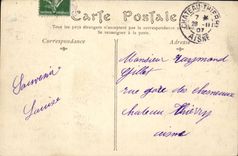 Carte Postale
Tous les pays étrangers n'acceptent pas la correspondance
au recto
Correspondance
Adresse
CHATEAU-THIERRY
7
28-11
07
AISNE
Souvenir
Louise
Monsieur Raymond
Gillet
rue gare des chesneaux
chateau Thierry
aisne